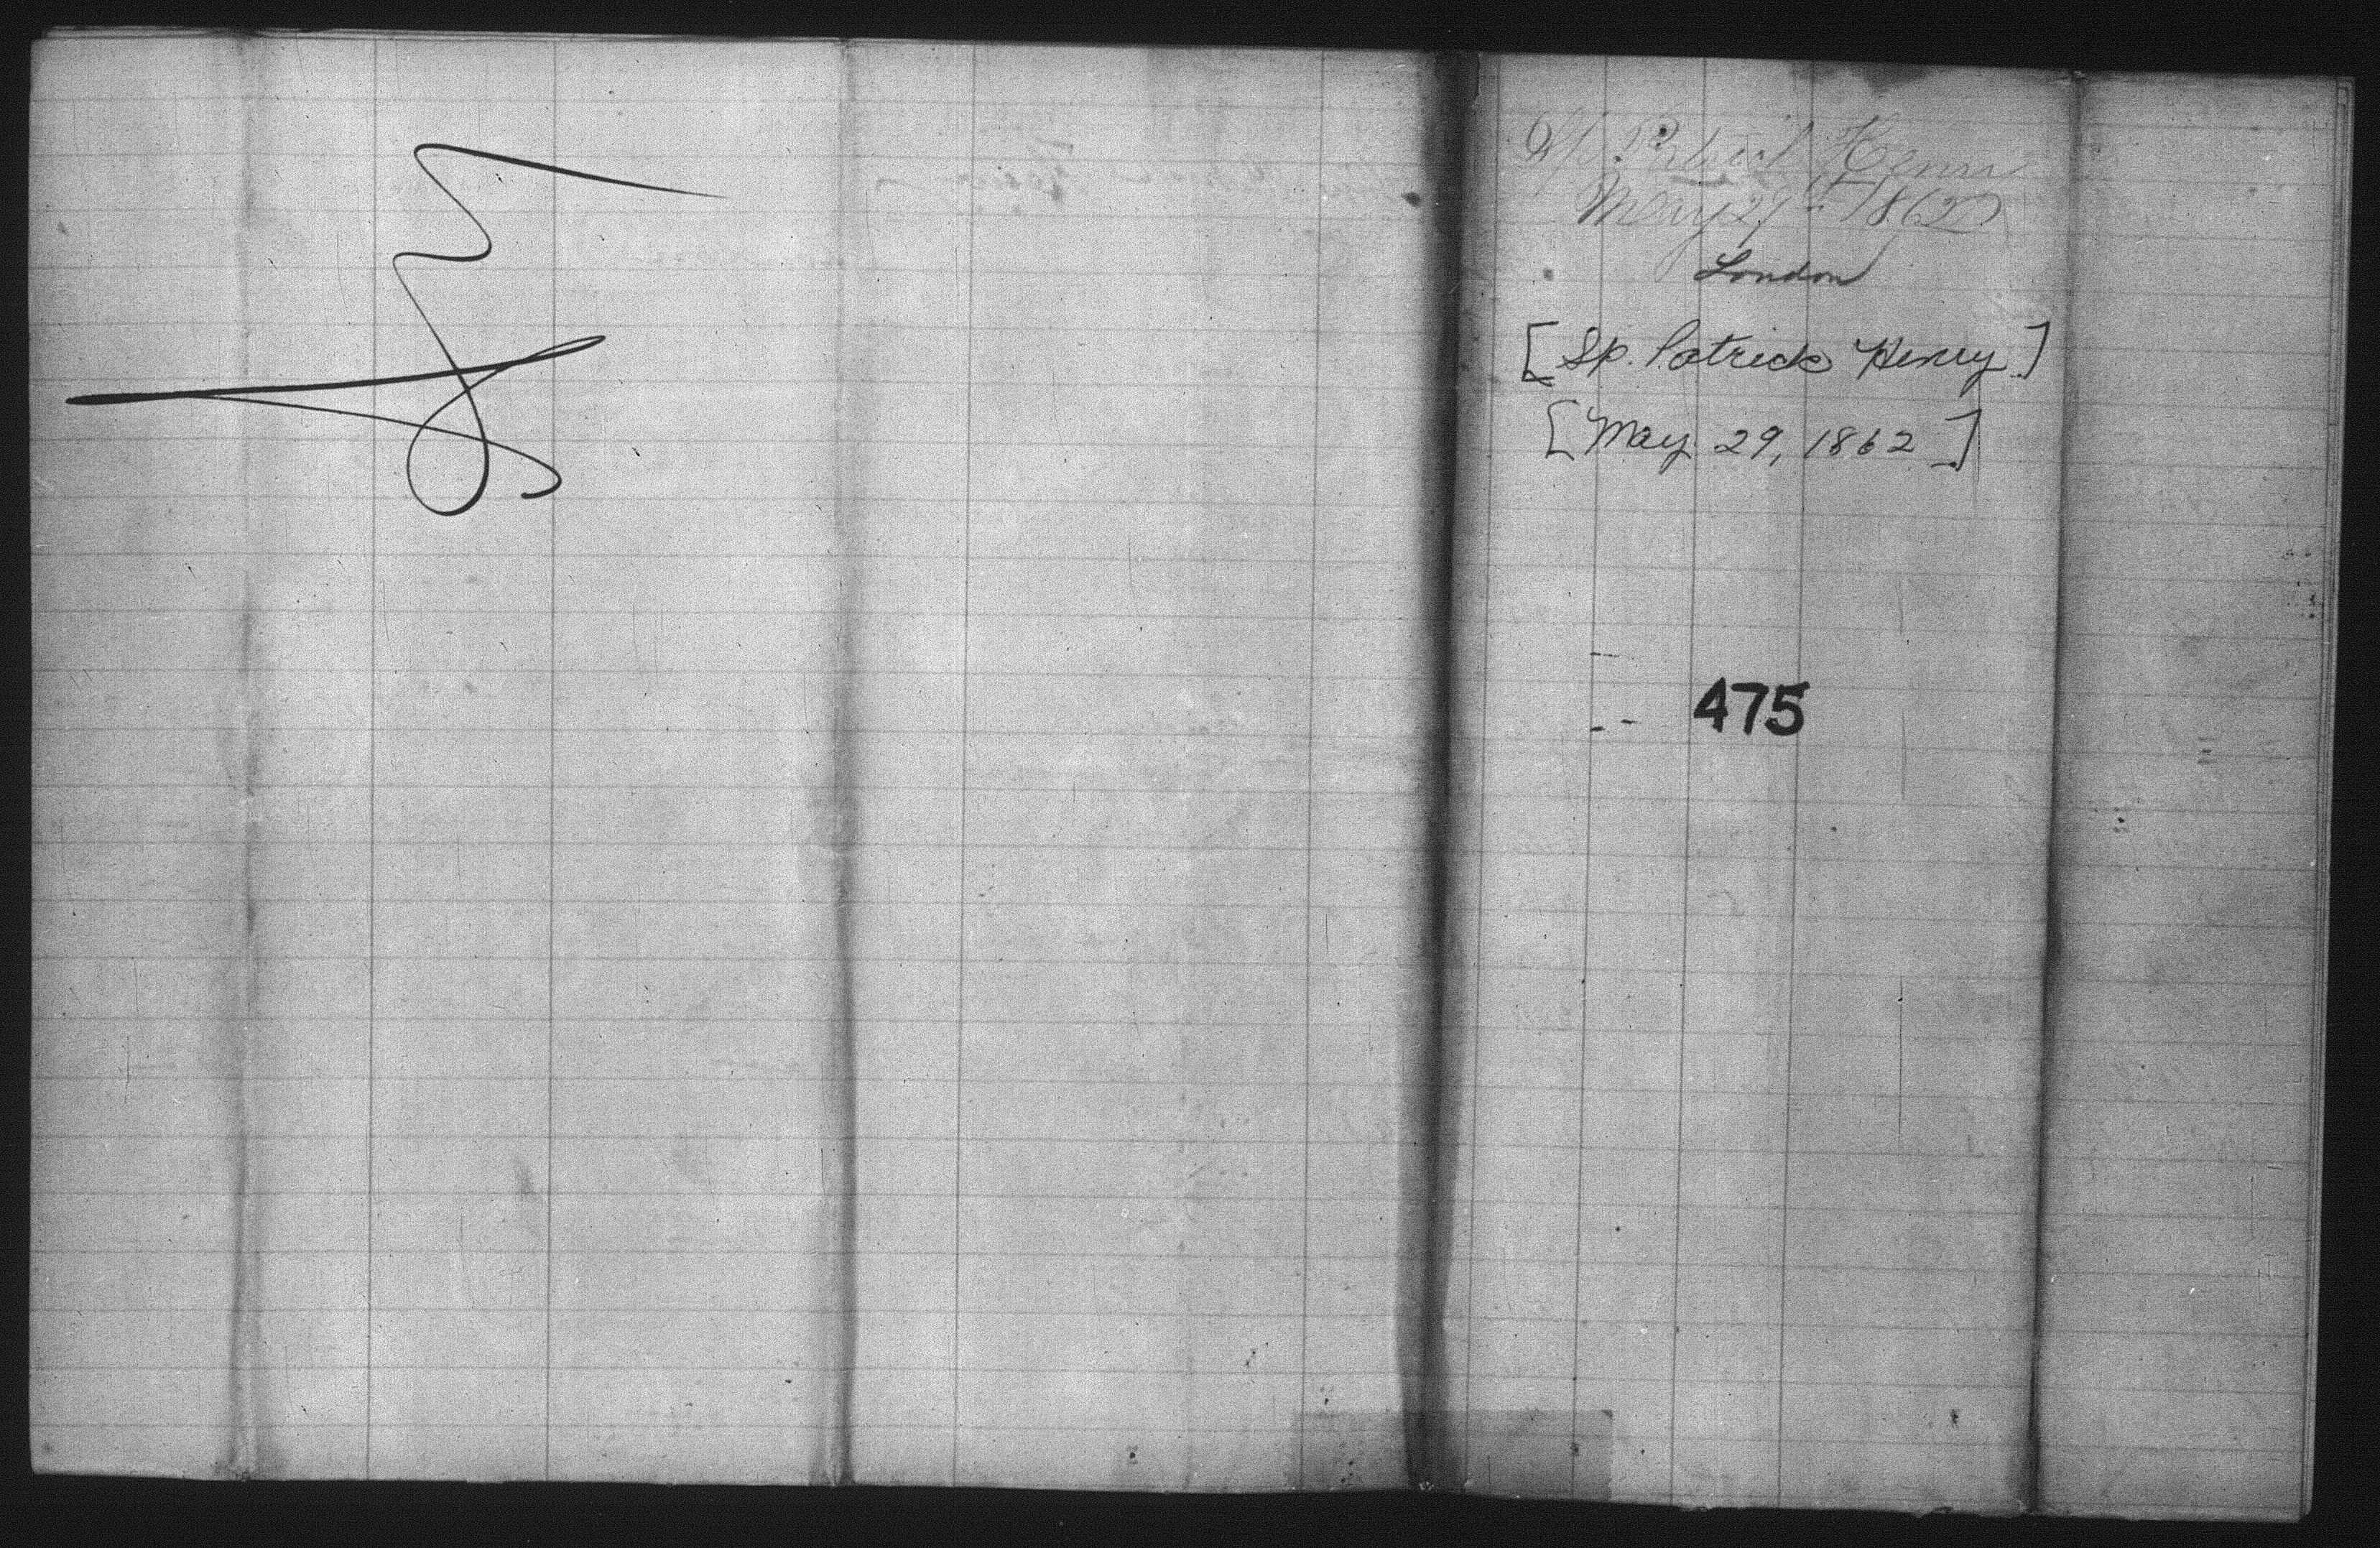 Sp. Patrick Henry
May 29th 1862
London
[Sp. Patrick Henry]
[May. 29, 1862]
475